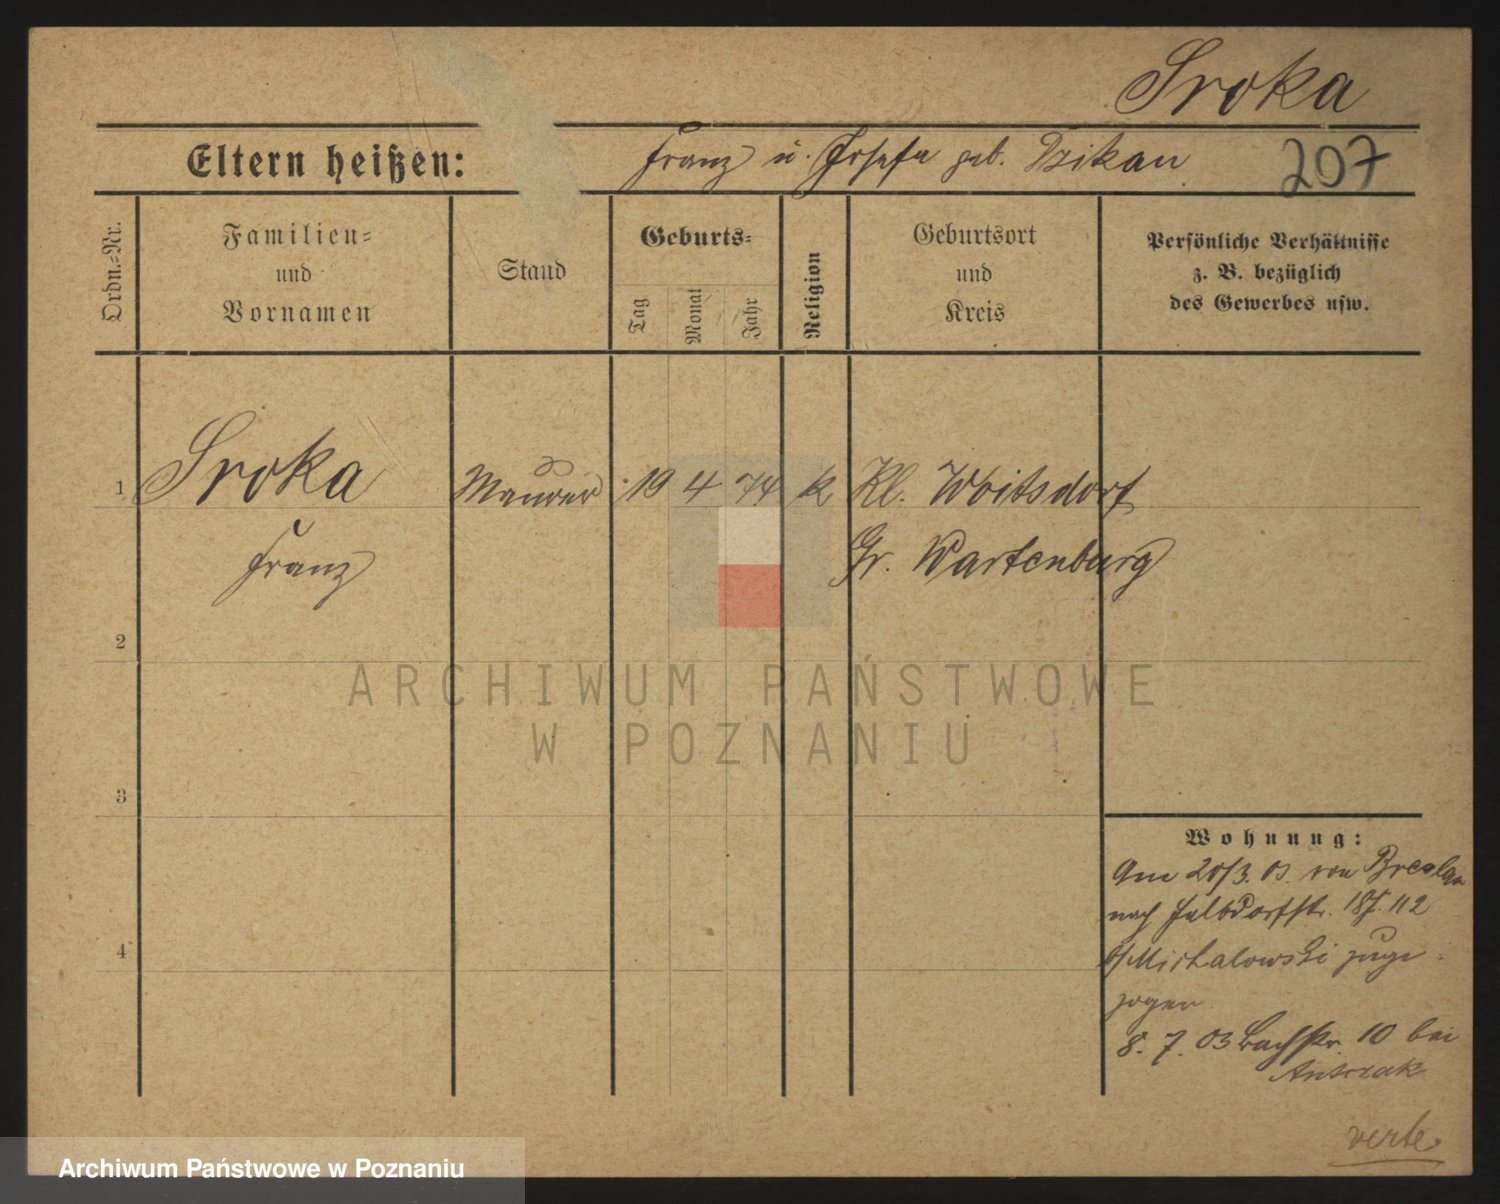 Sroka
Eltern heißen: Franz u. Josefa geb. Dzikan 207
Ordn.-Nr.
Familien-
und
Vornamen
Stand
Geburts-
Tag
Monat
Jahr
Religion
Geburtsort
und
Kreis
Persönliche Verhältnisse
z. B. bezüglich
des Gewerbes usw.
1 Sroka Maurer 19 4 74 k Kl. Woitsdorf
Franz Gr. Wartenburg
2
ARCHIWUM PAŃSTWOWE
W POZNANIU
3
Wohnung:
Am 20/3. 03. von Breslau
nach
4
Michalowski zuge-
zogen.
8. 7. 03 Bachstr. 10 bei
Antczak
verte
Archiwum Państwowe w Poznaniu